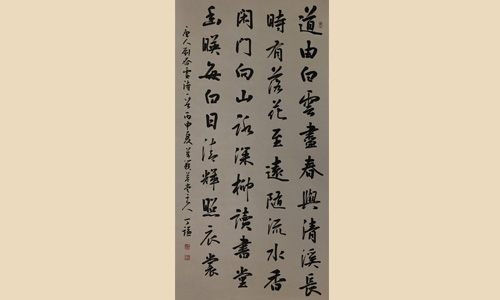 道由白雲盡春與清溪長
時有落花至遠隨流水香
闲门向山路深柳讀書堂
幽暎每白日清輝照衣裳
唐人劉眘雪詩一首丙申夏